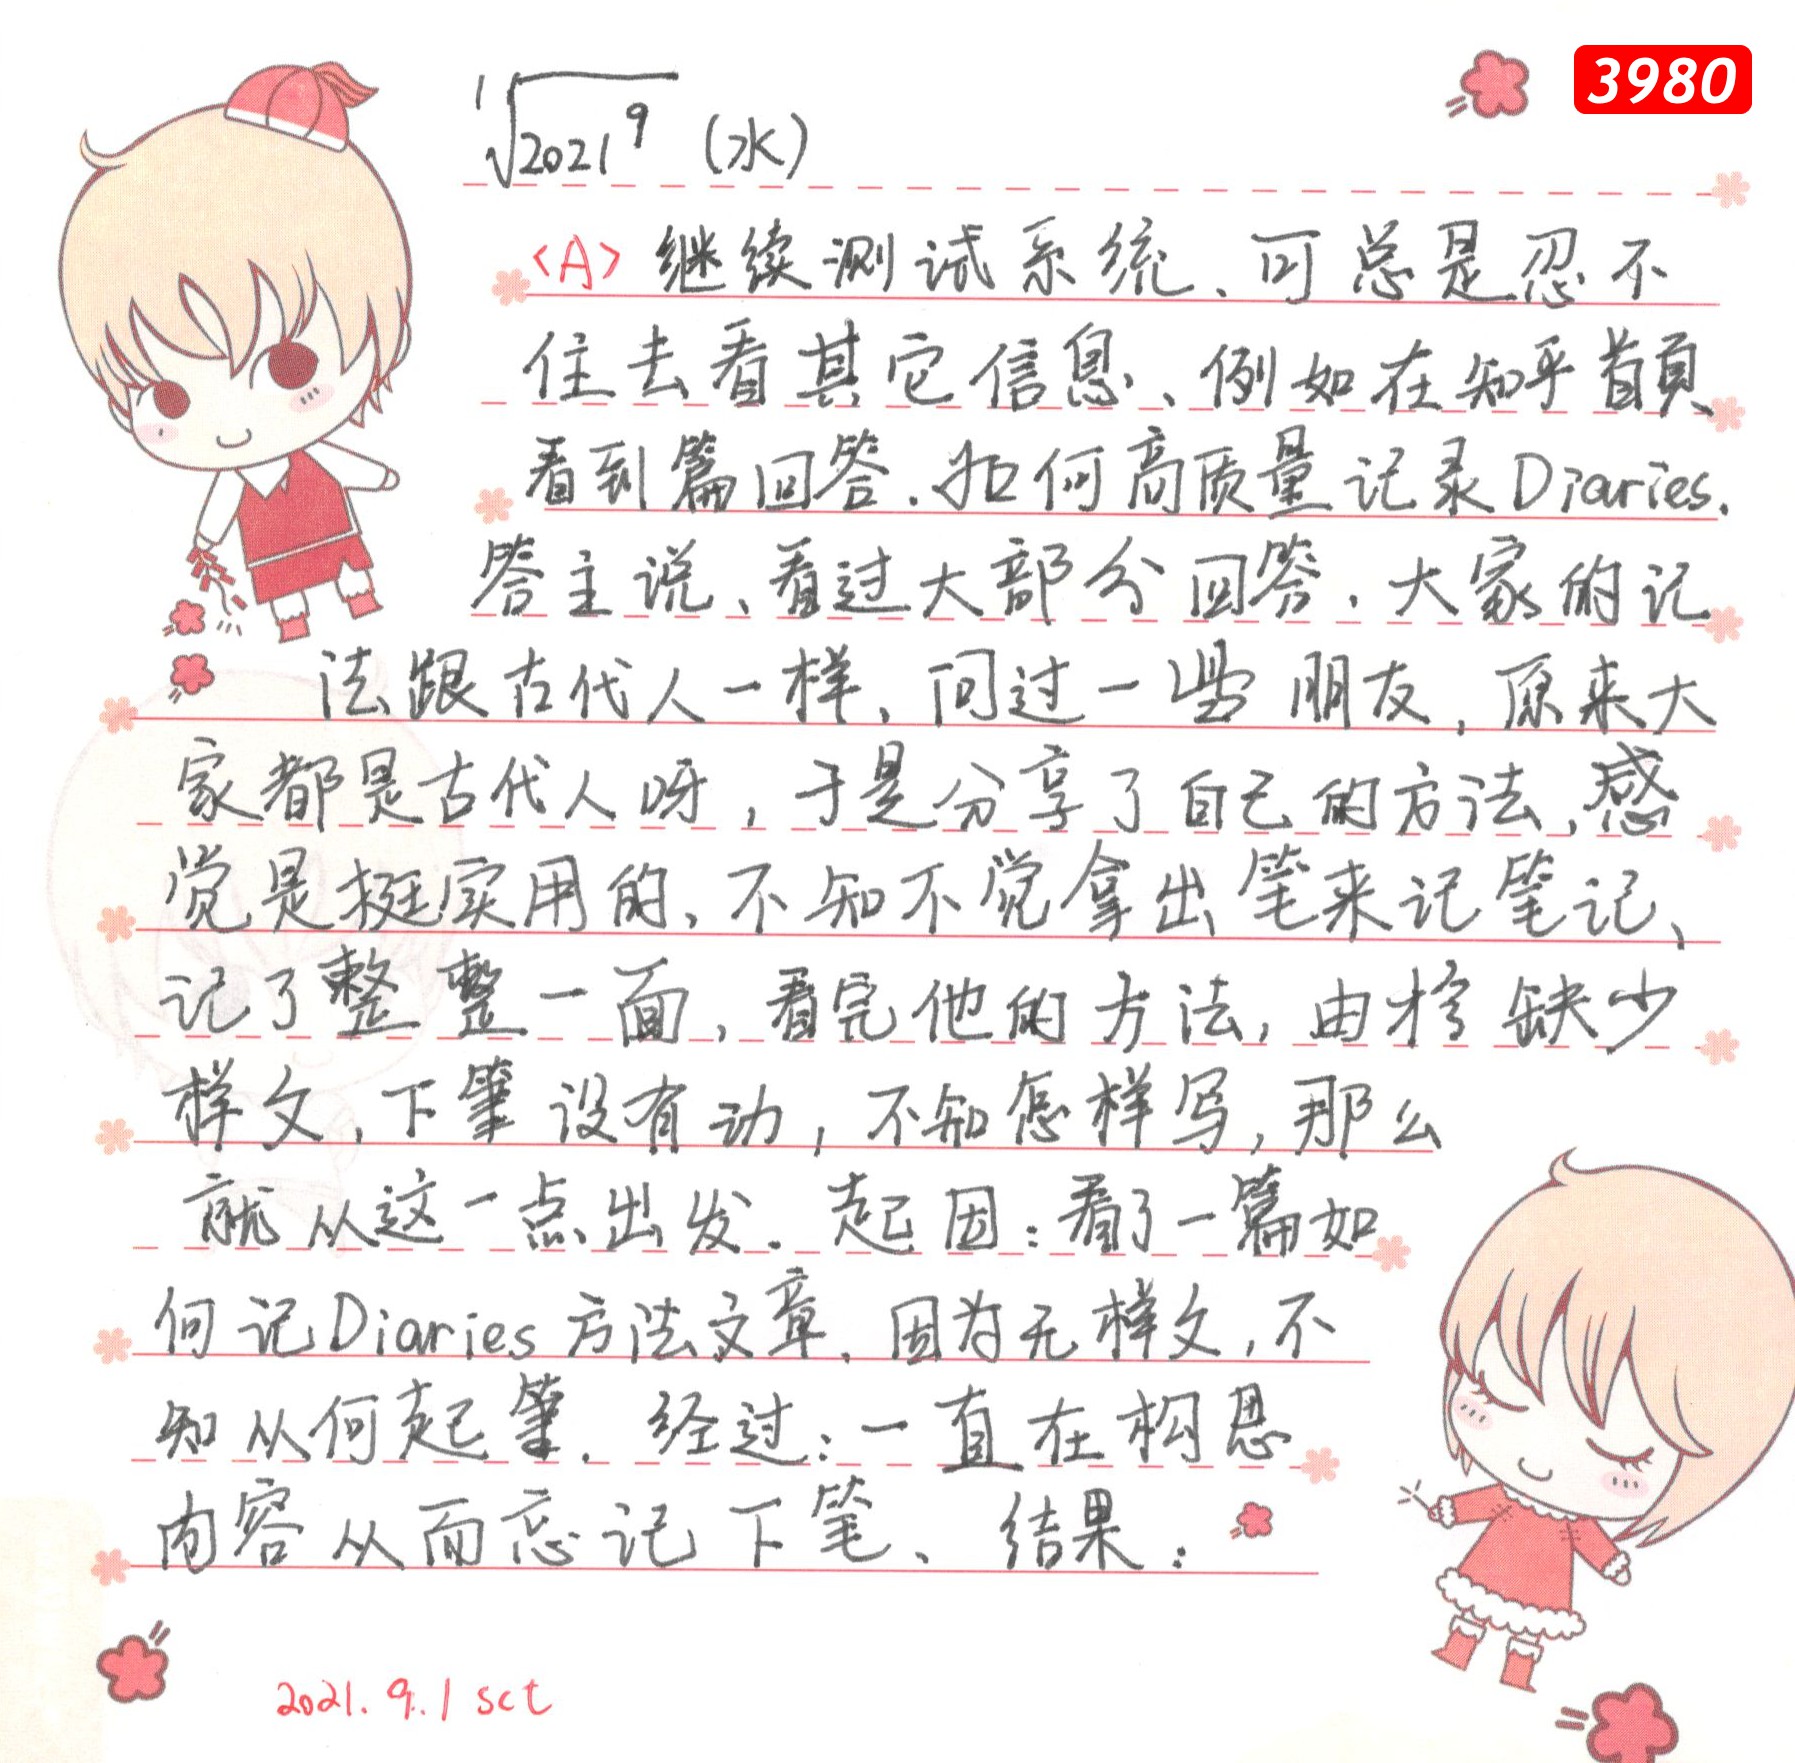 3980
¹√2021⁹ (水)
<A> 继续测试系统、可总是忍不
住去看其它信息、例如在知乎首頁、
看到篇回答.如何高质量记录Diaries.
答主说、看过大部分回答.大家的记
法跟古代人一样、问过一些朋友,原来大
家都是古代人呀,于是分享了自己的方法,感
觉是挺实用的,不知不觉拿出笔来记笔记、
记了整整一面,看完他的方法,由於缺少
样文,下筆没有动,不知怎样写,那么
就从这一点出发.起因:看了一篇如
何记Diaries方法文章.因为无样文,不
知从何起筆.经过:一直在构思
内容从而忘记下笔、结果:
2021.9.1 sct